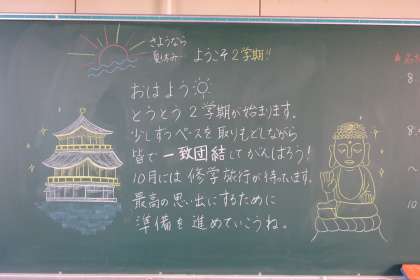 さようなら
夏休み
ようこそ2学期!!
おはよう
とうとう2学期が始まります.
少しずつペースを取りもどしながら
皆で一致団結してがんばろう!
10月には修学旅行が待っています.
最高の思い出にするために
準備を進めていこうね。
8
8:
〜
10